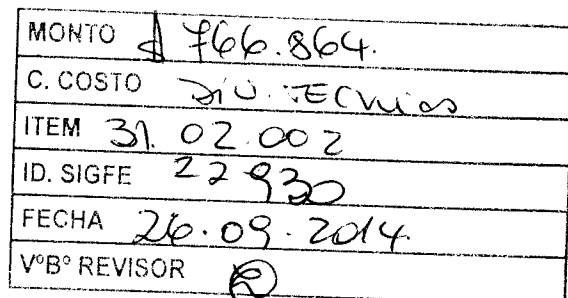 MONTO $ 766.864.
C. COSTO DIV. TECNICA
ITEM 31. 02.002
ID. SIGFE 22930
FECHA 26.09.2014
VºBº REVISOR